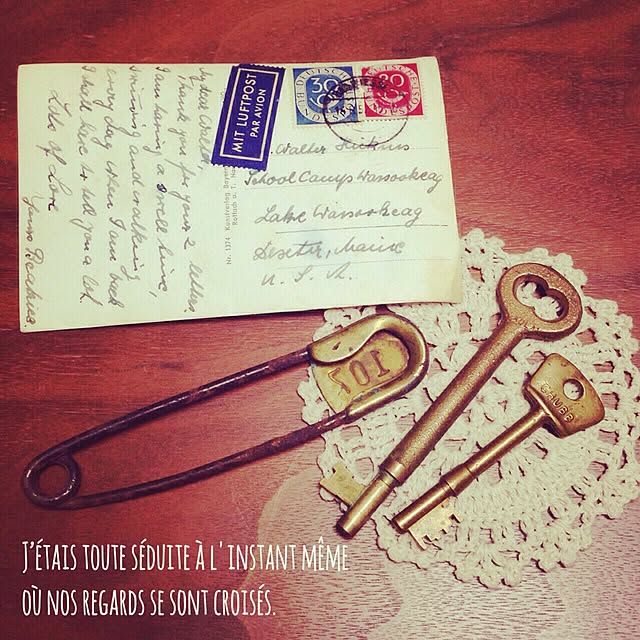 My dear Walter
Thank you for your 2 letters
I am having a swell time,
swimming and walking
every day. When I am back
I shall have to tell you a lot
Lots of Love
MIT LUFTPOST
PAR AVION
30
DEUTSCHE
20
Walter
School Camp Wassookeag
Lake Wassookeag
Dexter, Maine
U. S. A.
107
CHUBB
J'étais toute séduite à l'instant même
où nos regards se sont croisés.